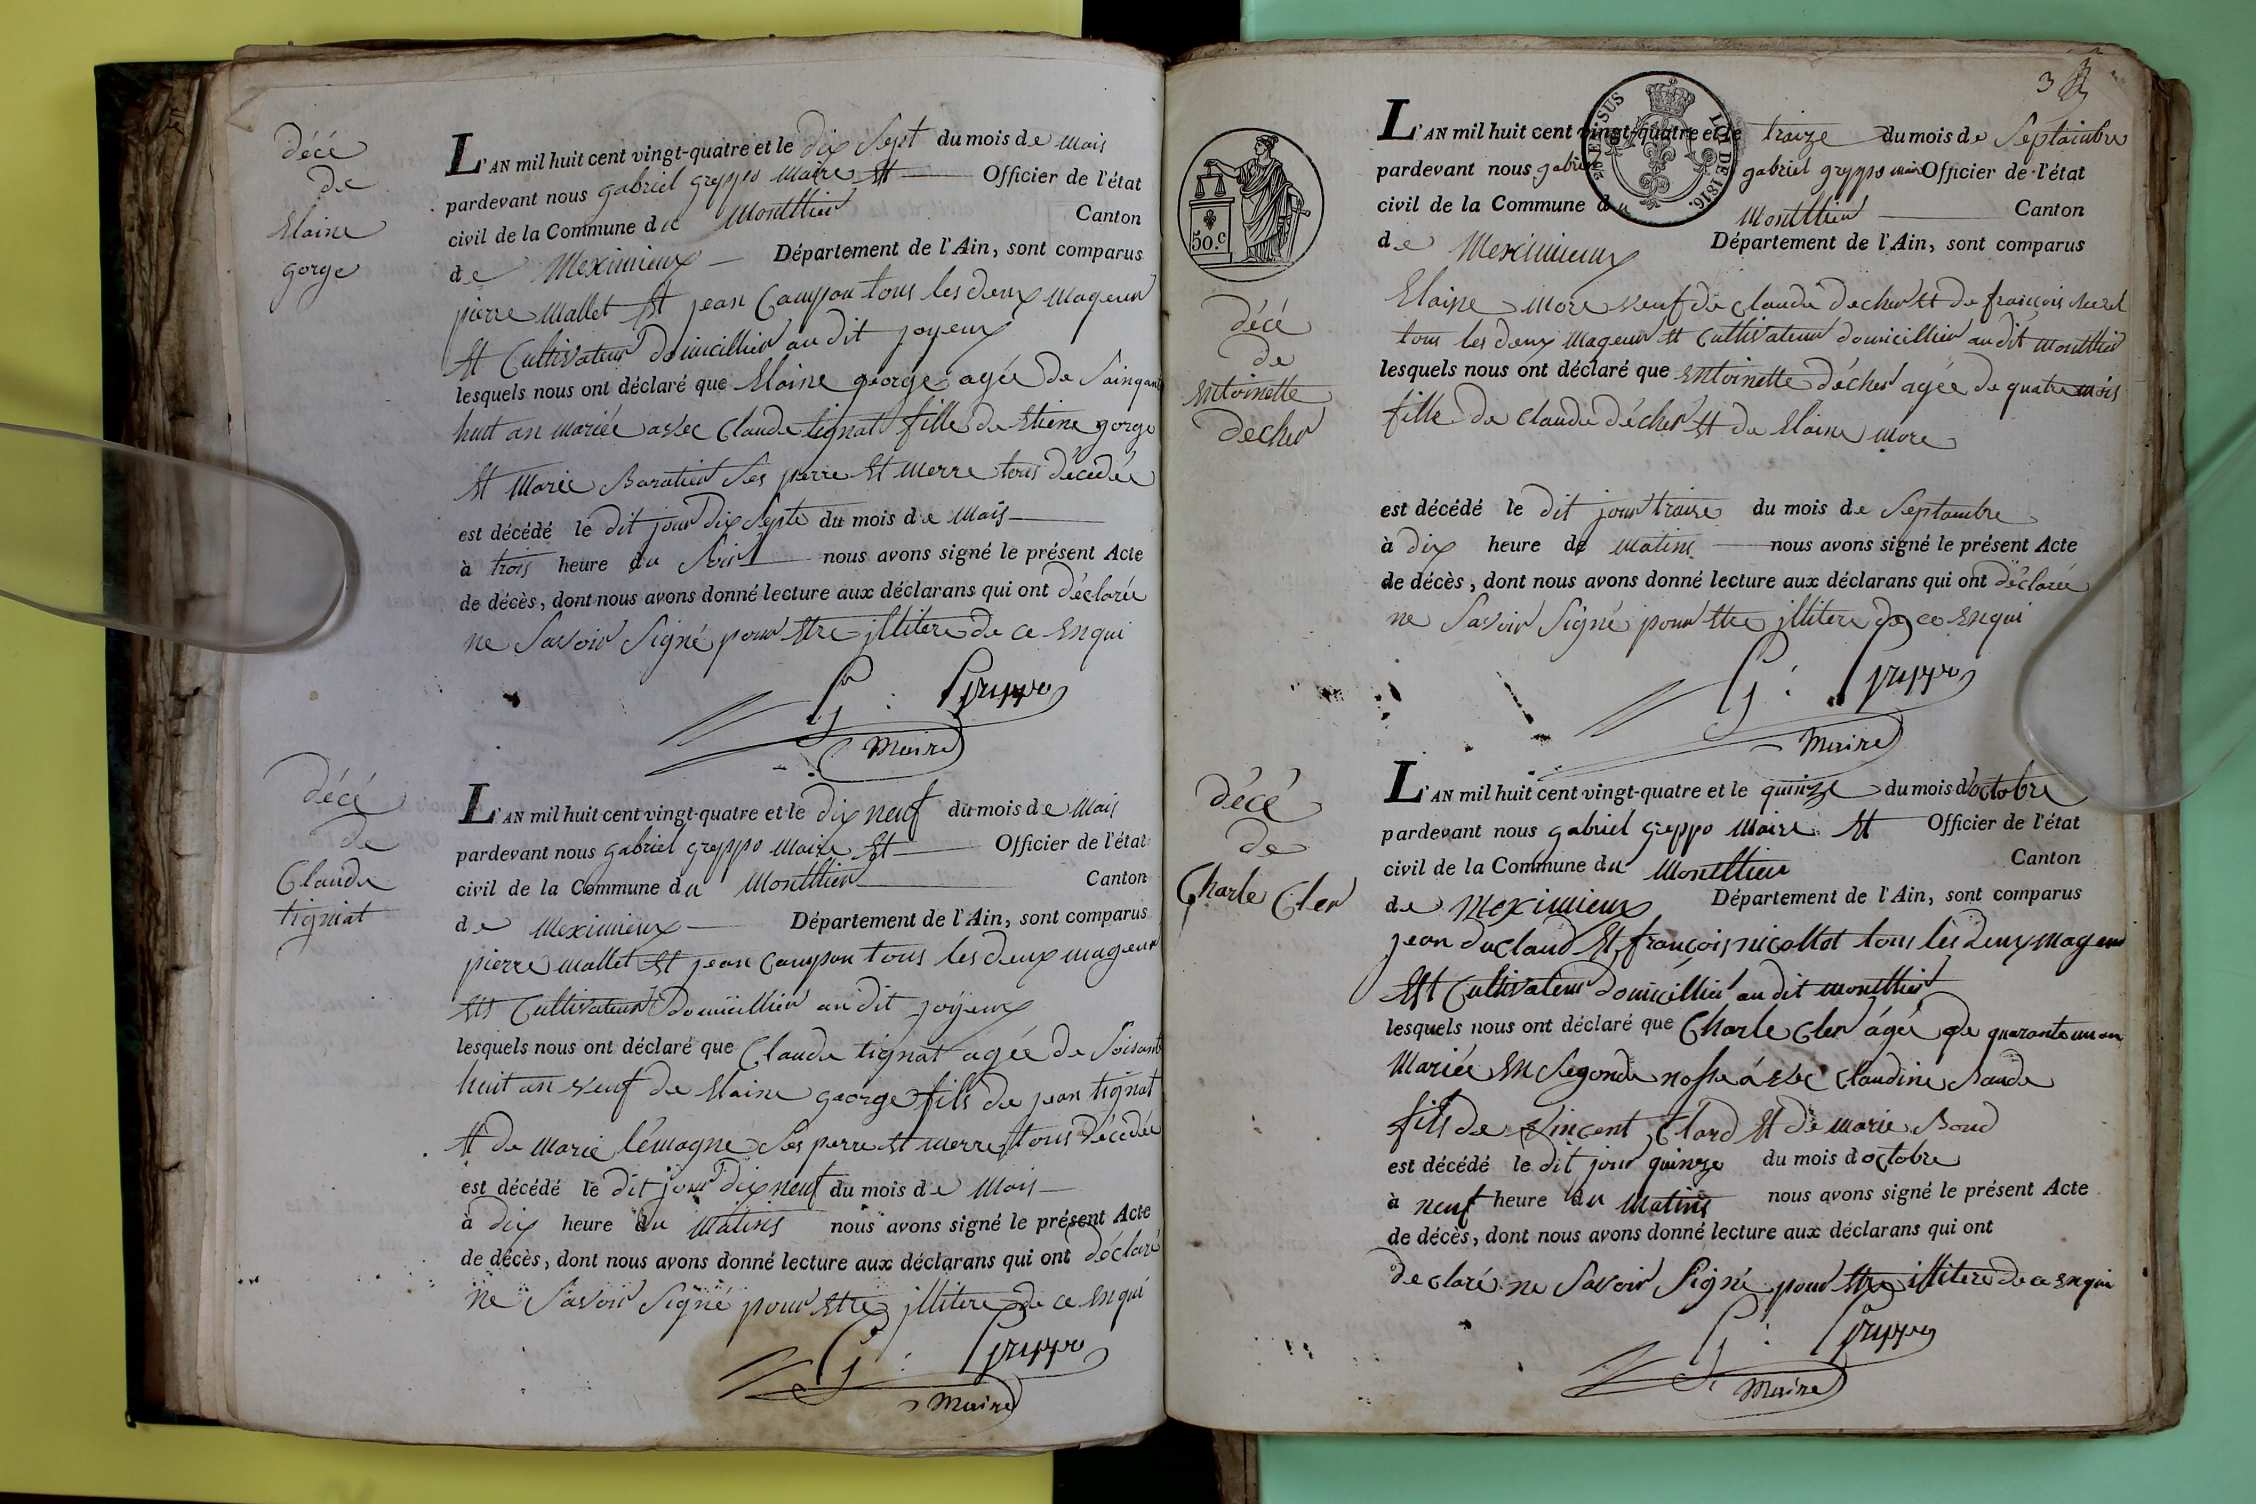 décé
de
Elaine
gorge
L'AN mil huit cent vingt-quatre et le dix Sept du mois de Mais
pardevant nous gabriel greppo Maire Et Officier de l'état
civil de la Commune du Montllier Canton
de Meximieux Département de l'Ain, sont comparus
pierre Mallet Et jean Campon tous les deux Mageur
Et Cultivateur domicillier au dit joyeux
lesquels nous ont déclaré que Elaine george agée de Sainqante
huit an mariée avec Claude tignat fille de Etiene gorge
Et Marie Baratier Ses perre Et Merre tous décedée
est décédé le dit jour dix Septe du mois de Mais
à trois heure du Soir nous avons signé le présent Acte
de décès, dont nous avons donné lecture aux déclarans qui ont déclarée
ne Savoir Signé pour Etre jllitere de ce Enqui
G : Greppo
Maire
décé
de
Claude
tigniat
L'AN mil huit cent vingt-quatre et le dix neuf du mois de Mais
pardevant nous gabriel greppo Maire Et Officier de l'état
civil de la Commune du Montllier Canton
de Meximieux Département de l'Ain, sont comparus
pierre Mallet Et jean Campon tous les deux mageur
Ett Cultivateur domicillier au dit joyeux
lesquels nous ont déclaré que Claude tignat agée de Soisante
huit an veuf de Elaine george fils de jean tignat
Et de Marie lémagne Ses perre Et merre tous décedée
est décédé le dit jour dix neuf du mois de Mais
à dix heure du Matins nous avons signé le présent Acte
de décès, dont nous avons donné lecture aux déclarans qui ont déclaré
ne Savoir Signé pour Etre jllitere de ce Enqui
G : Greppo
Maire
3
LOI DE 1816.
50.c
décé
de
Entoinette
decher
L'AN mil huit cent vingt-quatre et le traize du mois de Septaimbre
pardevant nous gabriel gabriel greppo maire Officier de l'état
civil de la Commune du Montllier Canton
de Meximieux Département de l'Ain, sont comparus
Elaine more veuf de claude decher Et de françois
tous les deux Mageur Et Cultivateur domicillier au dit montllier
lesquels nous ont déclaré que Entoinette décher agée de quatre mois
fille de claude décher Et de Elaine more
est décédé le dit jour traize du mois de Septambre
à dix heure de Matins nous avons signé le présent Acte
de décès, dont nous avons donné lecture aux déclarans qui ont déclarée
ne Savoir Signé pour Etre jllitere de ce Enqui
G : Greppo
Maire
décé
de
Charle Cler
L'AN mil huit cent vingt-quatre et le quinze du mois d'octobre
pardevant nous gabriel greppo Maire Et Officier de l'état
civil de la Commune du Montllier Canton
de Meximieux Département de l'Ain, sont comparus
jean duclaud Et françois nicollot tous les deux Mageur
Ett Cultivateur domicillier au dit montllier
lesquels nous ont déclaré que Charle Cler âgée de quarante un an
Mariée En Segonde nosse avec Claudine Baude
fils de Vincent Clard Et de Marie Boud
est décédé le dit jour quinze du mois doctobre
à neuf heure du Matins nous avons signé le présent Acte
de décès, dont nous avons donné lecture aux déclarans qui ont
declaré ne Savoir Signé pour Etre illitere de ce Enqui
G : Greppo
Maire